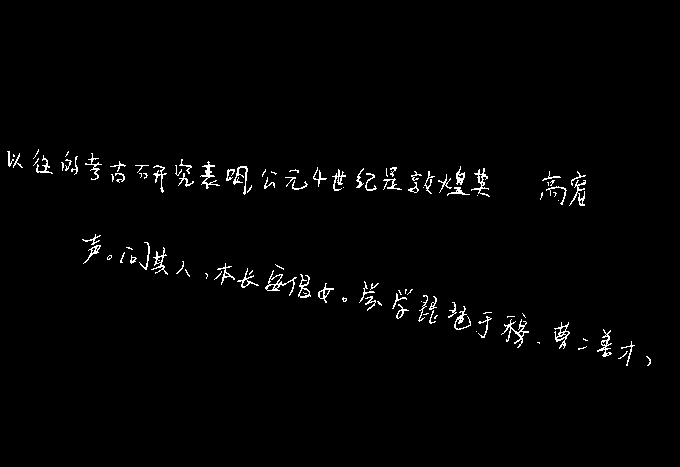 以往的考古研究表明公元4世纪是敦煌莫 高窟
声。问其人，本长安倡女。尝学琵琶于穆、曹二善才，